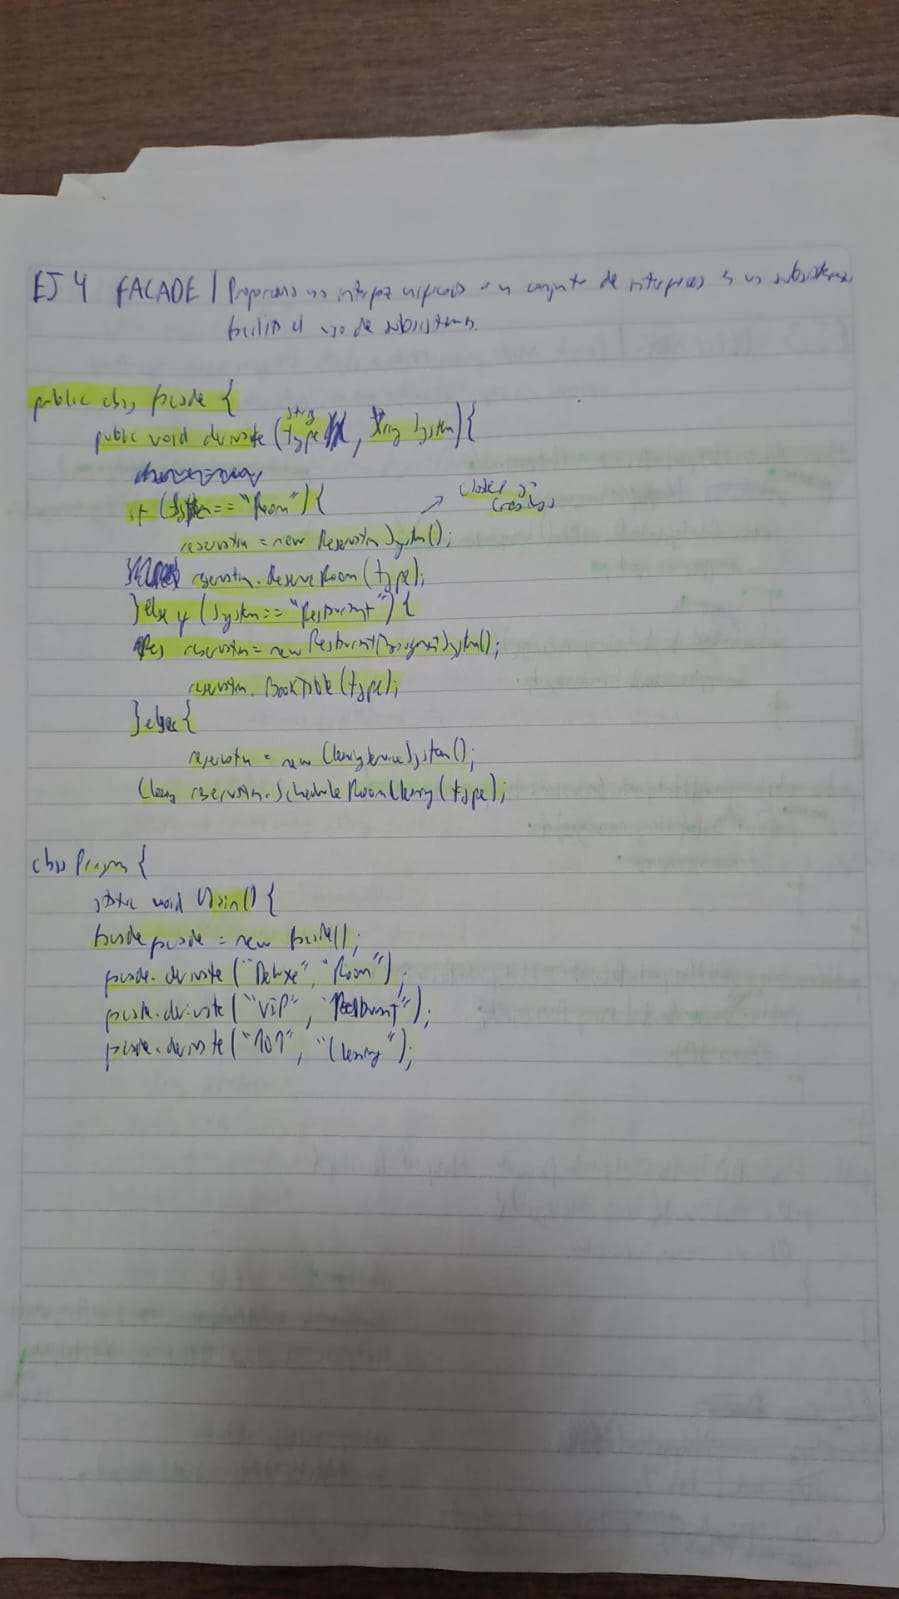 EJ 4 FACADE | Proporciona una interfaz unificada a un conjunto de interfaces en un subsistema
facilita el uso de subsistemas.
public class facade {
public void derivate (string type, string system) {
if (system == "Room") {
reservation = new ReservationSystem();
clases ya creadas
reservation.ReserveRoom(type);
} else if (system == "Restaurant") {
reservation = new RestaurantManagementSystem();
reservation.BookTable(type);
} else {
reservation = new CleaningServiceSystem();
reservation.ScheduleRoomCleaning(type);
class Program {
static void Main() {
facade facade = new facade();
facade.derivate("Deluxe", "Room");
facade.derivate("VIP", "Restaurant");
facade.derivate("101", "Cleaning");